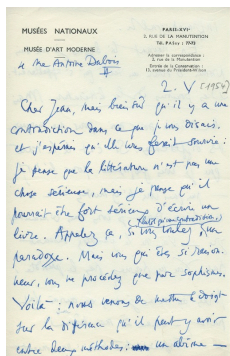 MUSÉES NATIONAUX
MUSÉE D'ART MODERNE
PARIS-XVIᵉ
2, RUE DE LA MANUTENTION
Adresser la correspondance :
2, rue de la Manutention
Entrée de la Conservation :
13, avenue du Président-Wilson
4 rue Antoine Dubois
2. V (1954)
Cher Jean, mais bien sûr qu'il y a une
contradiction dans ce que je vous disais,
et j'espérais qu'elle vous ferait sourire :
je pense que la littérature n'est pas une
chose sérieuse, mais je pense qu'il
pourrait être fort sérieux d'écrire un
livre. Appelez ça, si vous voulez, un
paradoxe. Mais vous qui êtes si
vous ne procédez que par sophismes.
Voilà : nous venons de mettre le doigt
sur la différence qu'il peut y avoir
entre deux méthodes : un abîme —